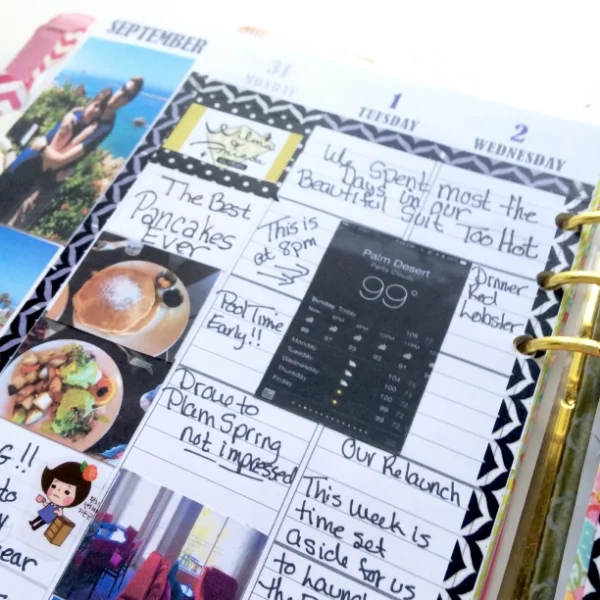 SEPTEMBER
31
MONDAY
1
TUESDAY
2
WEDNESDAY
We Spent most the
Days in our
Beautiful Suit Too Hot
The Best
Pancakes
Ever
This is
at 8pm
Pool Time
Early!!
Palm Desert
Partly Cloudy
99°
Sunday Today
Monday
Tuesday
Wednesday
Thursday
Friday
Dinner
Red
Lobster
Drove to
Plam Spring
not impressed
Our Relaunch
This week is
time set
aside for us
to Launch
G!!
to
ear